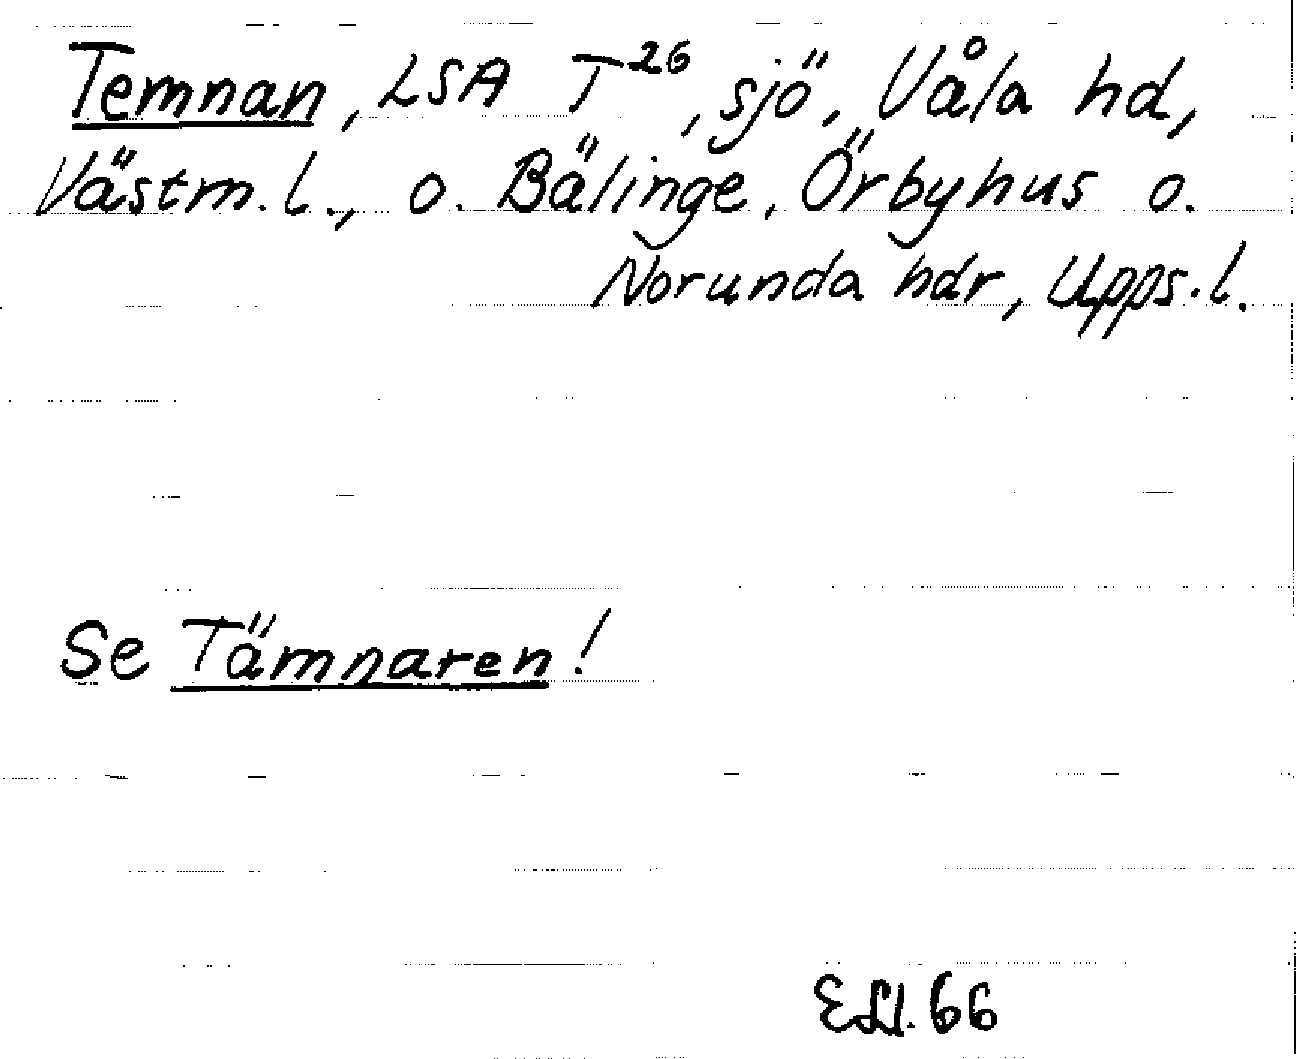 Temnan, LSA T26, sjö, Våla hd,
Västm. l., o. Bälinge, Örbyhus o.
Norunda hdr, Upps. l.
Se Tämnaren!
66